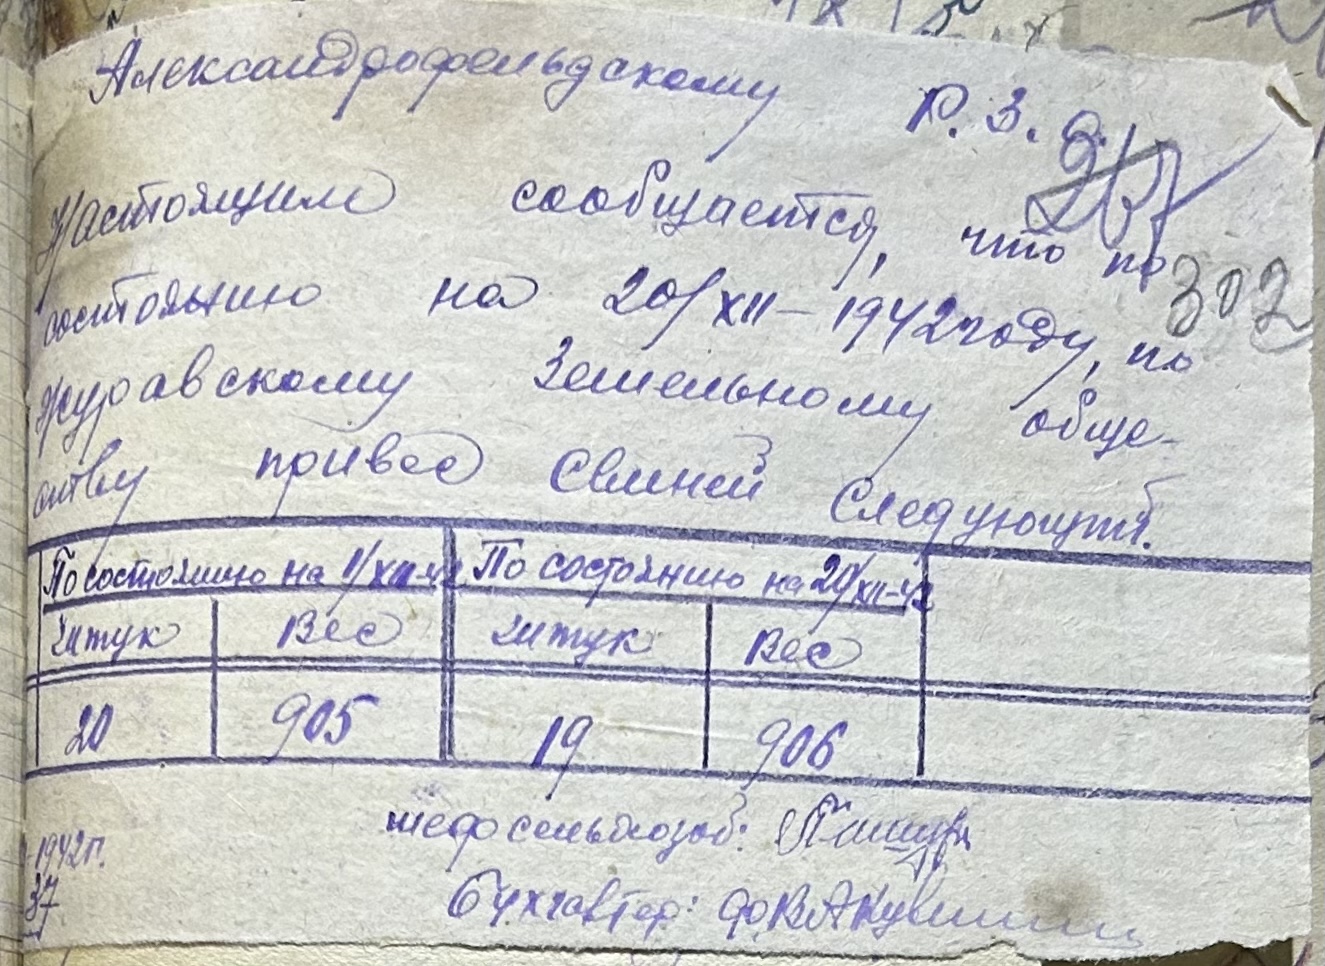 Александрофельдскому Р. З. О.
267
Настоящим сообщается, что по
302
состоянию на 20/XII-1942 году, по
Журавскому Земельному обще-
ству привес свиней следующий.
По состоянию на 1/XII-42 По состоянию на 20/XII-42
штук Вес штук Вес
20 905 19 906
шеф сельхозоб:
1942г.
37
Бухгалтер: